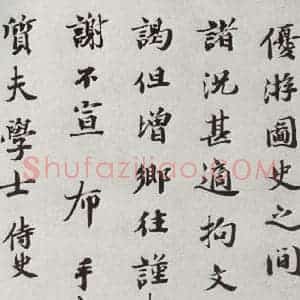 優游圖史之間
諸況甚適拘文
謁但增鄉往謹
謝不宣 布 手
質夫學士 侍史
Shufaziliao.COM